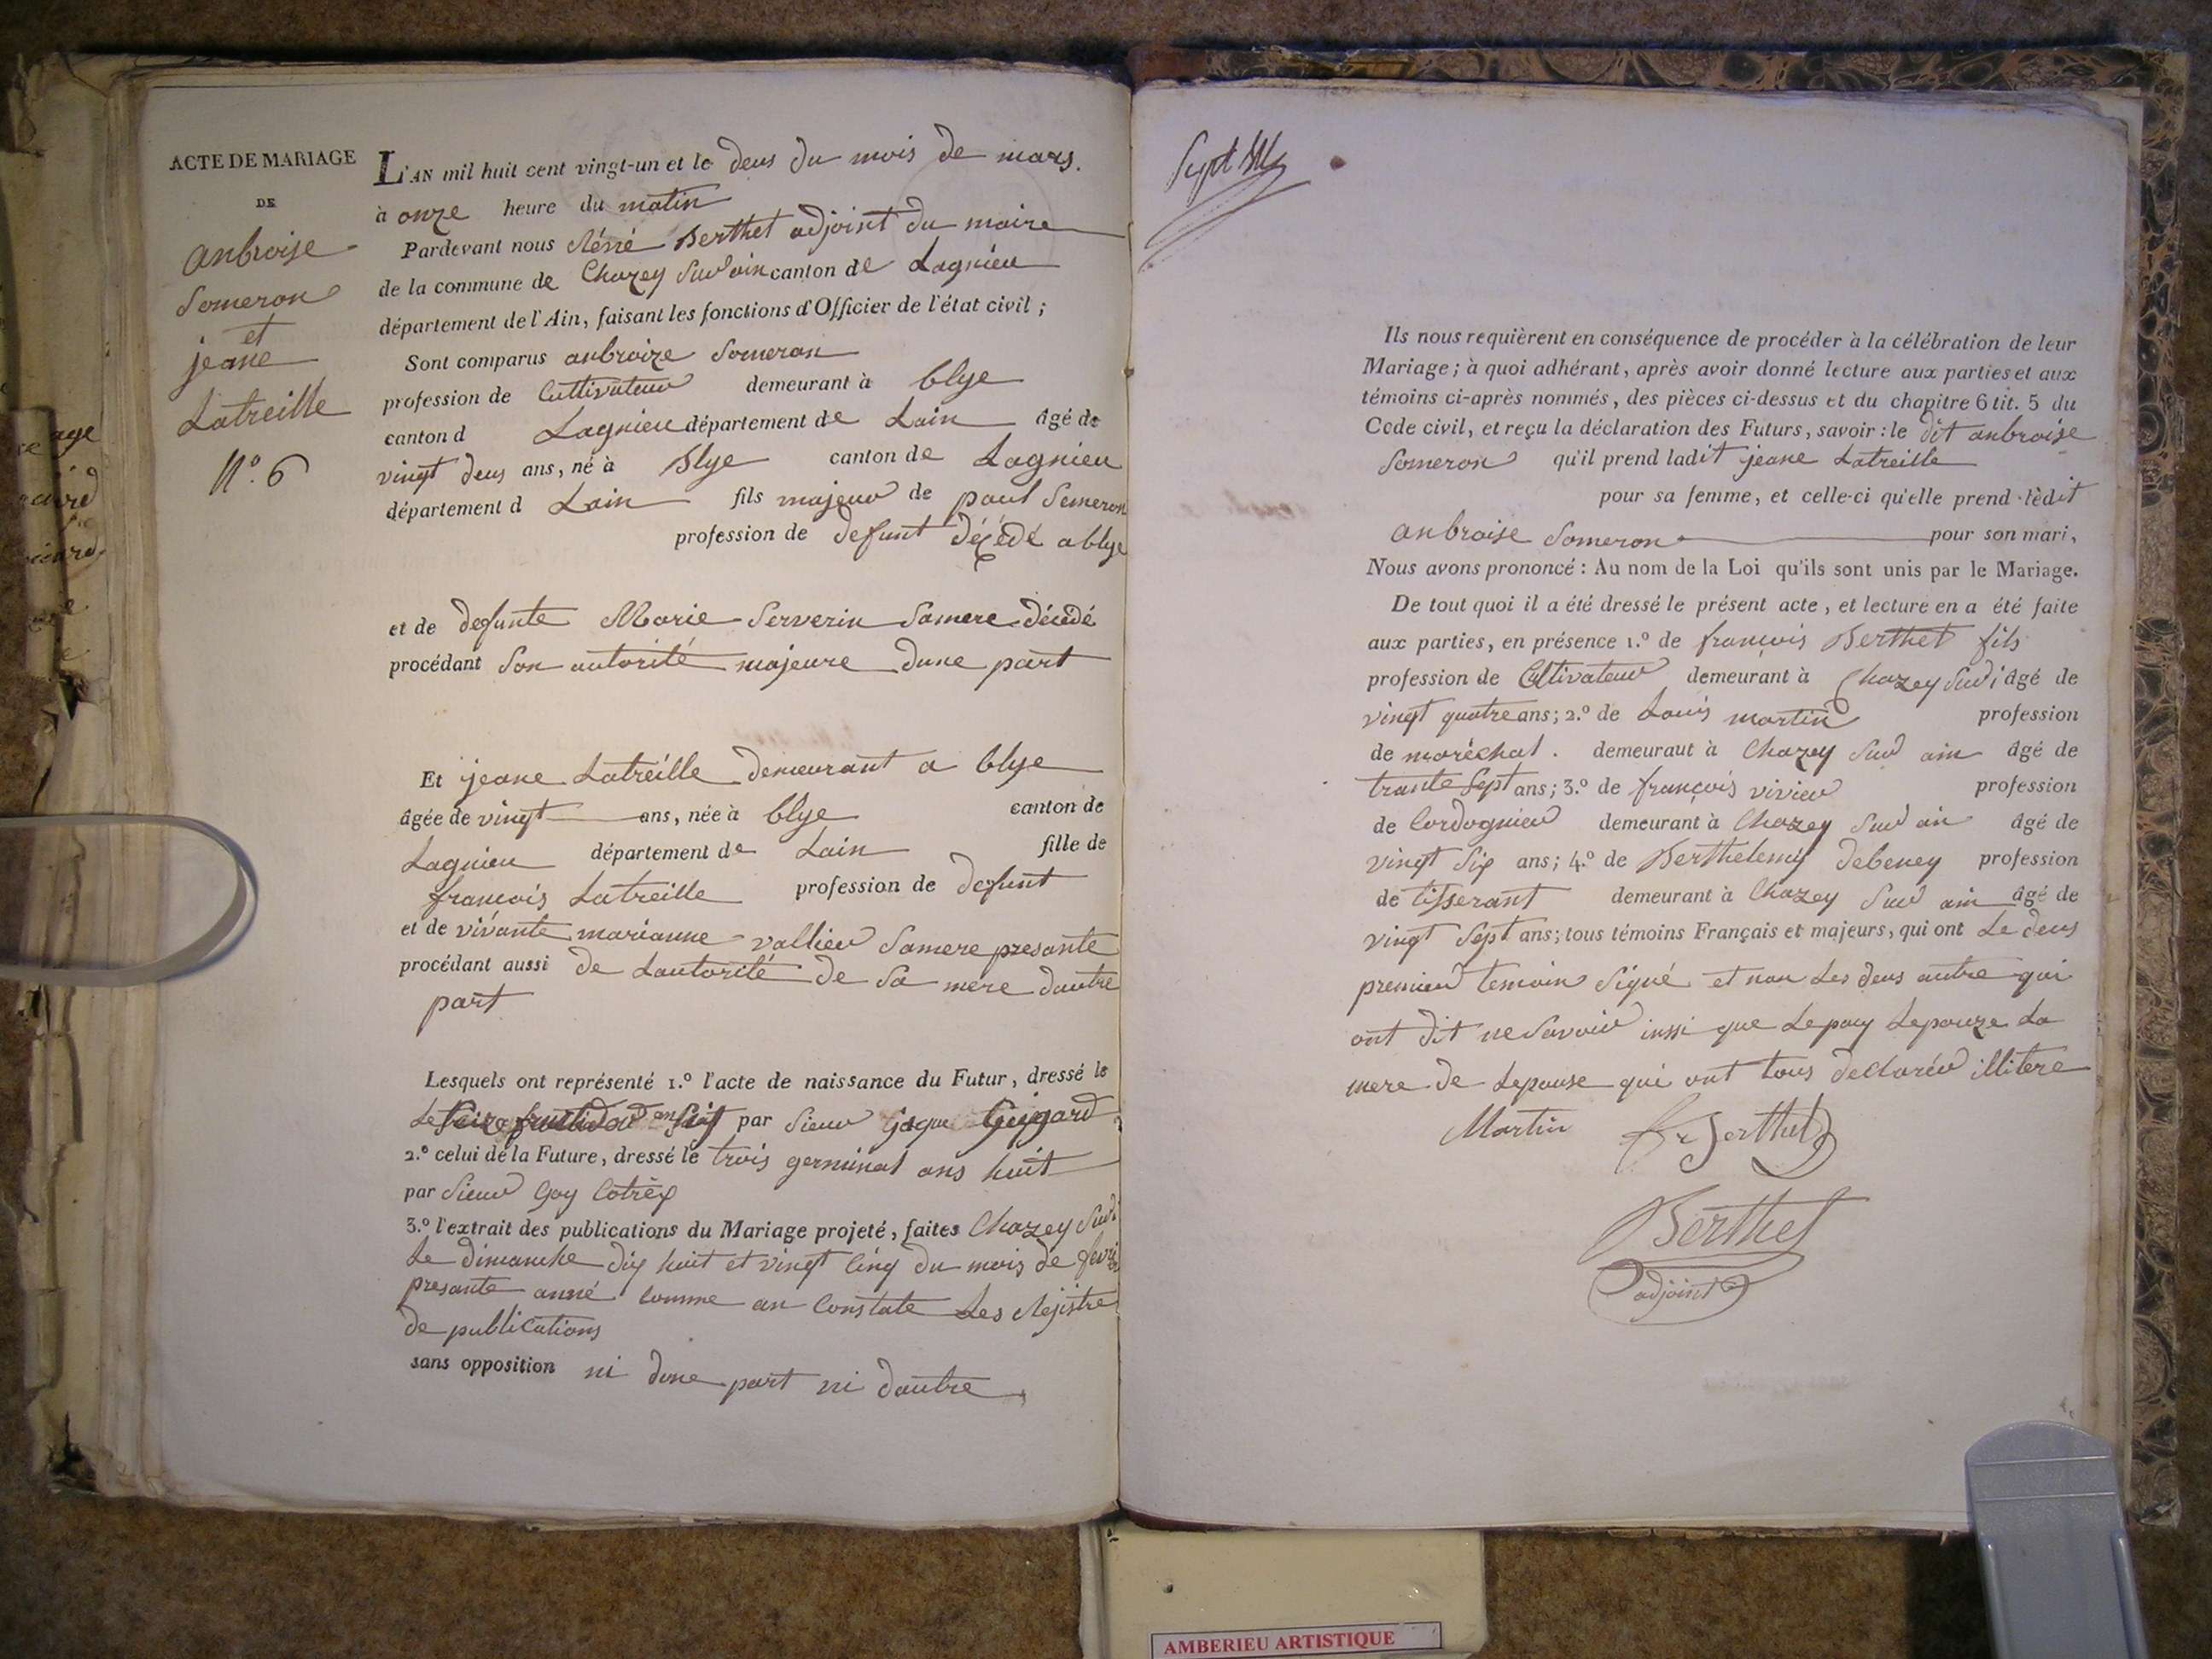 ACTE DE MARIAGE
DE
anbroise
Someron
et
jeane
Latreille
N.º 6
L'AN mil huit cent vingt-un et le deus du mois de mars.
à onze heure du matin
Pardevant nous Réné Berthet adjoint du maire
de la commune de Chazey Sur ain canton de Lagnieu
département de l'Ain, faisant les fonctions d'Officier de l'état civil ;
Sont comparus anbroize Someron
profession de Cultivateur demeurant à blye
canton d Lagnieu département de Lain âgé de
vingt deus ans, né à Blye canton de Lagnieu
département d Lain fils majeur de paul Someron
profession de defunt décédé a blye
et de defunte Marie Serverin Samere décédé
procédant Son autorité majeure dune part
Et jeane Latreille demeurant a blye
âgée de vingt ans, née à blye canton de
Lagnieu département de Lain fille de
francois Latreille profession de defunt
et de vivante marianne vallier Samere presante
procédant aussi de Lautorité de Sa mere dautre
part
Lesquels ont représenté 1.º l'acte de naissance du Futur, dressé le
Le an par Sieur Guigard
2.º celui de la Future, dressé le trois germinal ans huit
par Sieur Goy
3.º l'extrait des publications du Mariage projeté, faites Chazey Sur
Le dimanche dix huit et vingt cinq du mois de fevrier
presante anné comme an Constate Les Rejistre
de publications
sans opposition ni dune part ni dautre
Sept
Ils nous requièrent en conséquence de procéder à la célébration de leur
Mariage ; à quoi adhérant, après avoir donné lecture aux parties et aux
témoins ci-après nommés, des pièces ci-dessus et du chapitre 6 tit. 5 du
Code civil, et reçu la déclaration des Futurs, savoir : le dit anbroise
Someron qu'il prend ladit jeane Latreille
pour sa femme, et celle-ci qu'elle prend lèdit
anbroise Someron pour son mari,
Nous avons prononcé : Au nom de la Loi qu'ils sont unis par le Mariage.
De tout quoi il a été dressé le présent acte, et lecture en a été faite
aux parties, en présence 1.º de francois Berthet fils
profession de Cultivateur demeurant à Chazey Sur âgé de
vingt quatre ans ; 2.º de Louis martin profession
de maréchal. demeurant à Chazey Sur ain âgé de
trante Sept ans ; 3.º de françois vivier profession
de Cordognier demeurant à Chazey Sur ain âgé de
vingt Six ans ; 4.º de Berthelemy debeney profession
de tisserant demeurant à Chazey Sur ain âgé de
vingt Sept ans ; tous témoins Français et majeurs, qui ont Le deus
premier temoin Signé et non Les deus autre qui
ont dit ne Savoir inssi que Lepoux Lepouze La
mere de Lepouse qui ont tous declarér illitere
Martin fr Berthet
Berthet
adjoint
AMBERIEU ARTISTIQUE